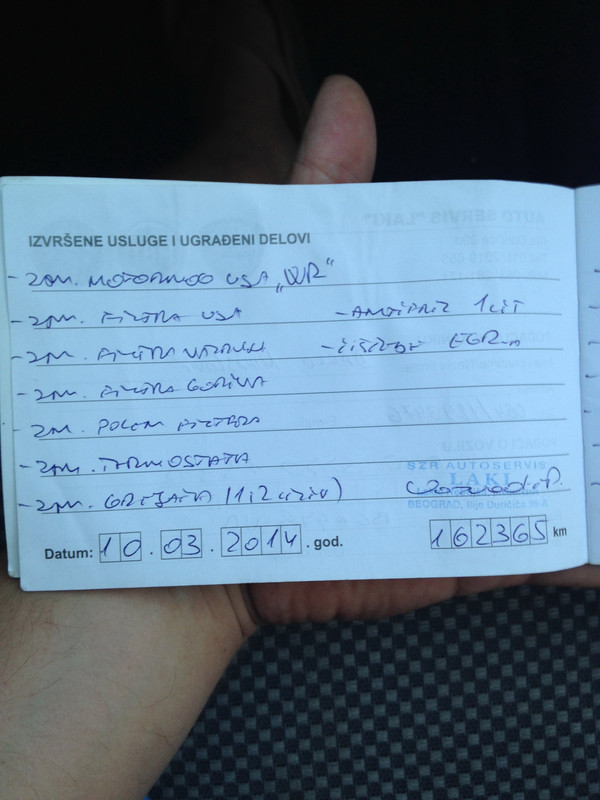 IZVRŠENE USLUGE I UGRAĐENI DELOVI
- ZAM. MOTORNOG ULJA „QR“
- ZAM. FILTRA ULJA - ANTIFRIZ 1 LIT
- ZAM. FILTRA VAZDUHA - ČIŠĆENJE EGR-a
- ZAM. FILTRA GORIVA
- ZAM. POLEN FILTERA
- ZAM. TERMOSTATA
- ZAM. GREJAČA (1 i 2
SZR AUTOSERVIS
LAKI
BEOGRAD, Ilije Đuričića
Datum: 10.03.2014. god. 162365 km